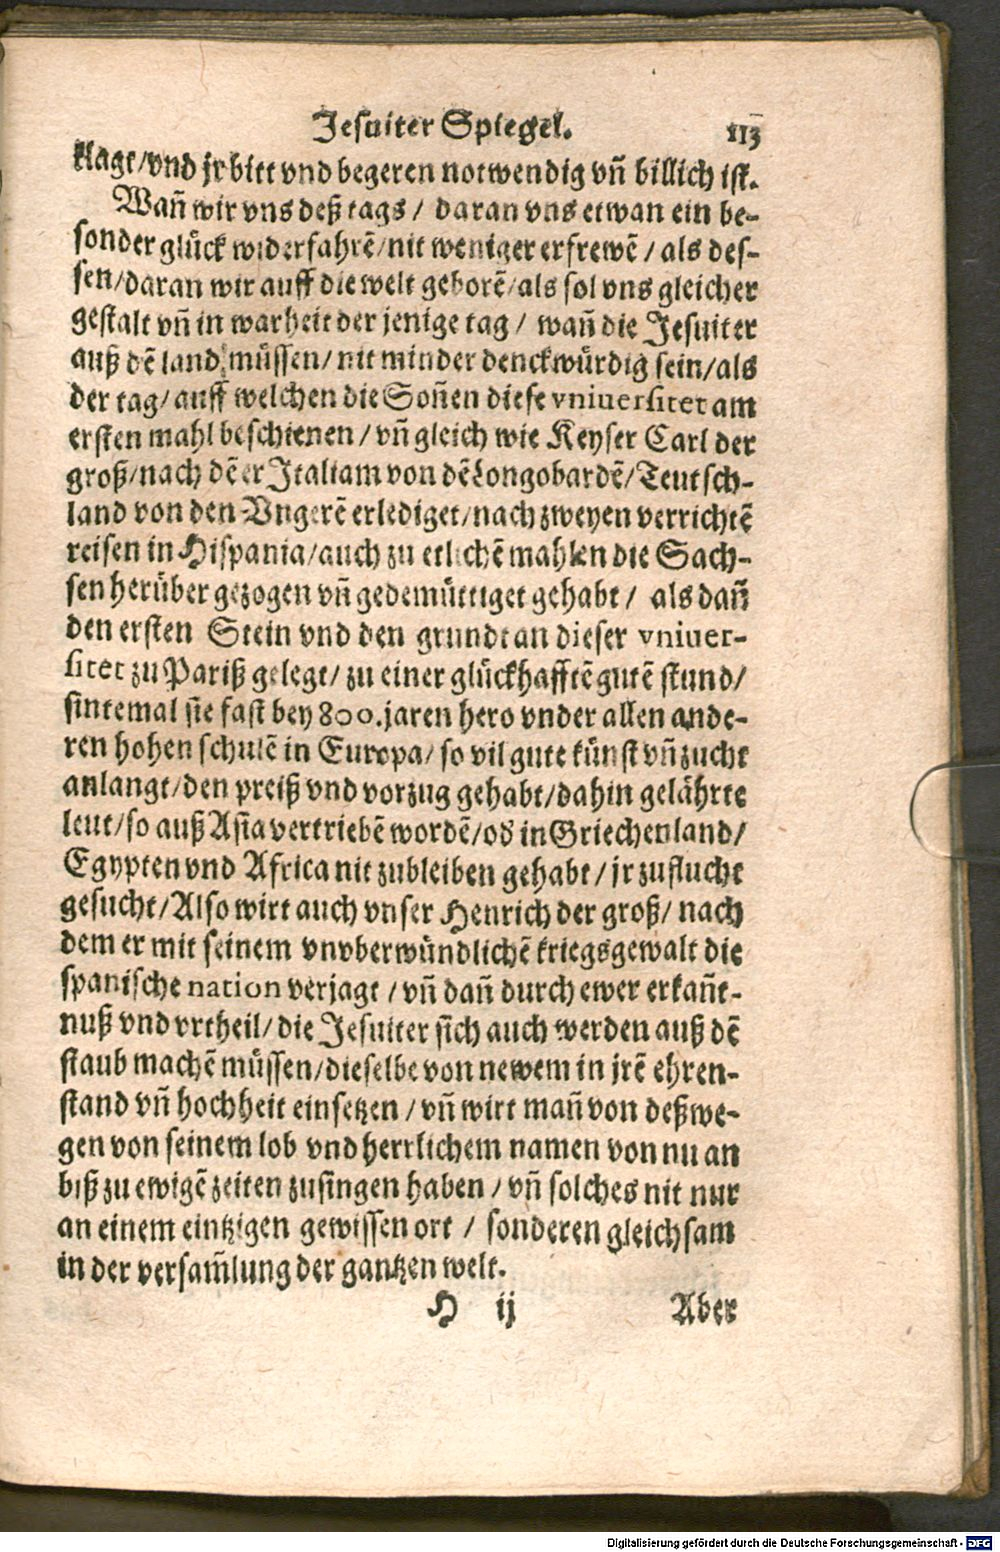 Jesuiter Spiegel. 113
klagt/vnd jr bitt vnd begeren notwendig vñ billich ist.
Wañ wir vns deß tags / daran vns etwan ein be-
sonder glück widerfahrẽ/nit weniger erfrewẽ / als des-
sen/daran wir auff die welt geborẽ/als sol vns gleicher
gestalt vñ in warheit der jenige tag / wañ die Jesuiter
auß dẽ land müssen/nit minder denckwürdig sein/als
der tag/auff welchen die Soñen diese vniuersitet am
ersten mahl beschienen / vñ gleich wie Keyser Carl der
groß/nach dẽ er Italiam von dẽ Longobardẽ/Teutsch-
land von den Vngerẽ erlediget/nach zweyen verrichtẽ
reisen in Hispania/auch zu etlichẽ mahlen die Sach-
sen herüber gezogen vñ gedemüttiget gehabt / als dañ
den ersten Stein vnd den grundt an dieser vniuer-
sitet zu Pariß gelegt/ zu einer glückhafftẽ gutẽ stund/
sintemal sie fast bey 800.jaren hero vnder allen ande-
ren hohen schulẽ in Europa/ so vil gute künst vñ zucht
anlangt/den preiß vnd vorzug gehabt/dahin gelährte
leut/so auß Asia vertriebẽ wordẽ/od̕ in Griechenland/
Egypten vnd Africa nit zubleiben gehabt / jr zuflucht
gesucht/Also wirt auch vnser Henrich der groß/ nach
dem er mit seinem vnvberwündlichẽ kriegsgewalt die
spanische nation verjagt / vñ dañ durch ewer erkañt-
nuß vnd vrtheil/die Jesuiter sich auch werden auß dẽ
staub machẽ müssen/dieselbe von newem in jrẽ ehren-
stand vñ hochheit einsetzen / vñ wirt mañ von deßwe-
gen von seinem lob vnd herrlichem namen von nu an
biß zu ewigẽ zeiten zusingen haben / vñ solches nit nur
an einem eintzigen gewissen ort / sonderen gleichsam
in der versam̃lung der gantzen welt.
H ij Aber
Digitalisierung gefördert durch die Deutsche Forschungsgemeinschaft - DFG